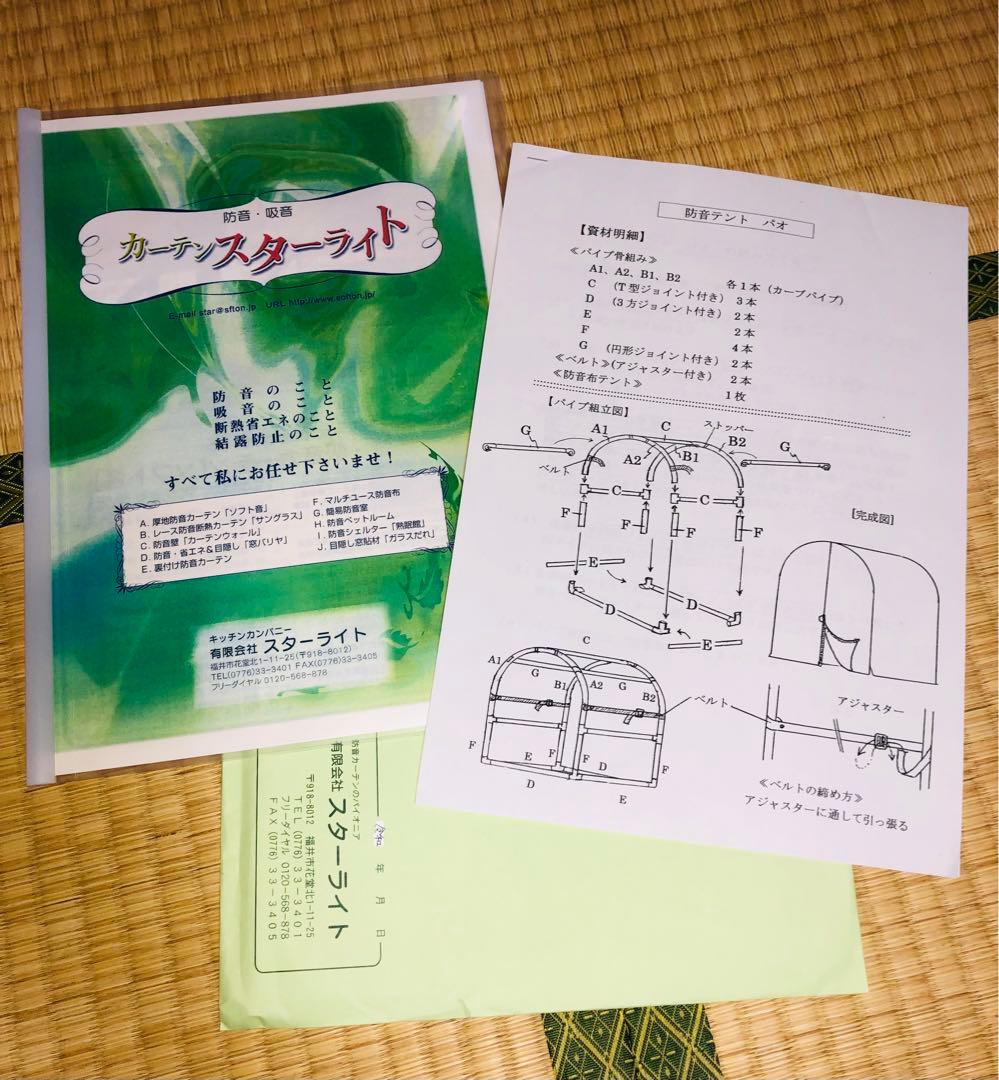 防音・吸音
カーテンスターライト
E-mail star@sfton.jp URL http://www.softon.jp/
防音のこと
吸音のこと
断熱省エネのこと
結露防止のこと
すべて私にお任せ下さいませ！
A. 厚地防音カーテン「ソフト音」
B. レース防音断熱カーテン「サングラス」
C. 防音壁「カーテンウォール」
D. 防音・省エネ＆目隠し「窓バリヤ」
E. 裏付け防音カーテン
F. マルチユース防音布
G. 簡易防音室
H. 防音ペットルーム
I. 防音シェルター「熟眠館」
J. 目隠し窓貼材「ガラスだれ」
キッチンカンパニー
有限会社 スターライト
福井市花堂北1-11-25(〒918-8012)
TEL(0776)33-3401 FAX(0776)33-3405
フリーダイヤル 0120-568-878
防音テント パオ
【資材明細】
≪パイプ骨組み≫
A1、A2、B1、B2 各1本（カーブパイプ）
C （T型ジョイント付き） 3本
D （3方ジョイント付き） 2本
E 2本
F 4本
G （円形ジョイント付き） 2本
≪ベルト≫(アジャスター付き） 2本
≪防音布テント≫ 1枚
【パイプ組立図】
G
A1
C
ストッパー
B2
G
ベルト
A2
B1
C
C
F
F
F
F
E
D
D
E
[完成図]
C
A1
G
B1
A2
G
B2
ベルト
F
E
F
D
F
F
D
E
アジャスター
≪ベルトの締め方≫
アジャスターに通して引っ張る
防音カーテンのパイオニア
有限会社 スターライト
〒918-8012 福井市花堂北1-11-25
TEL (0776) 33-3401
フリーダイヤル 0120-568-878
FAX (0776) 33-3405
令和 年 月 日